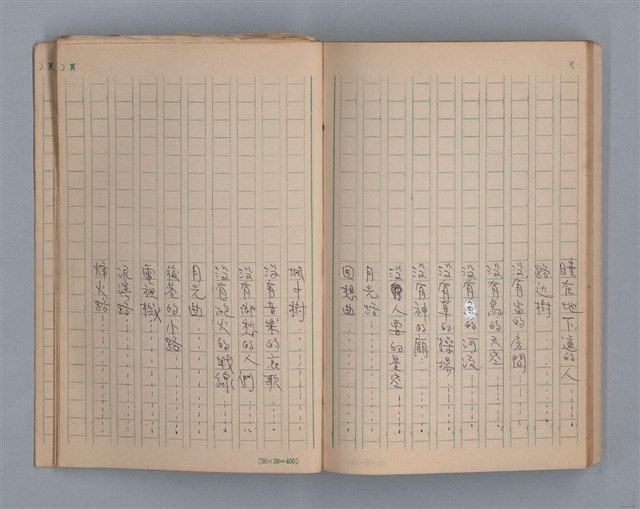 睡在地下道的人………
路边樹…………
沒有窗的房間………
沒有鳥的天空………
沒有魚的河流………
沒有草的操場………
沒有神的廟…………
沒有人要的星空………
月光路…………
回想曲…………
城中樹…………
沒有音樂的哀歌………
沒有鄉愁的人們………
沒有砲火的戰線………
月光曲…………
後巷的小路………
電視機…………
流浪路…………
煙火路…………
(20×20=400)
頁)
頁)